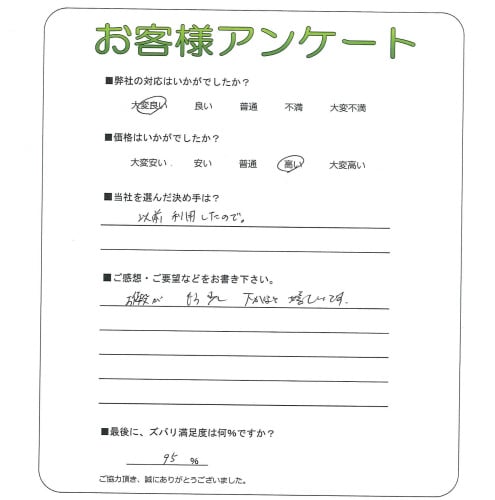 お客様アンケート
■弊社の対応はいかがでしたか？
大変良い 良い 普通 不満 大変不満
■価格はいかがでしたか？
大変安い . 安い 普通 高い 大変高い
■当社を選んだ決め手は？
以前利用したので。
■ご感想・ご要望などをお書き下さい。
お値段が もう少し 下がると 嬉しいです.
■最後に、ズバリ満足度は何%ですか？
95 %
ご協力頂き、誠にありがとうございました。